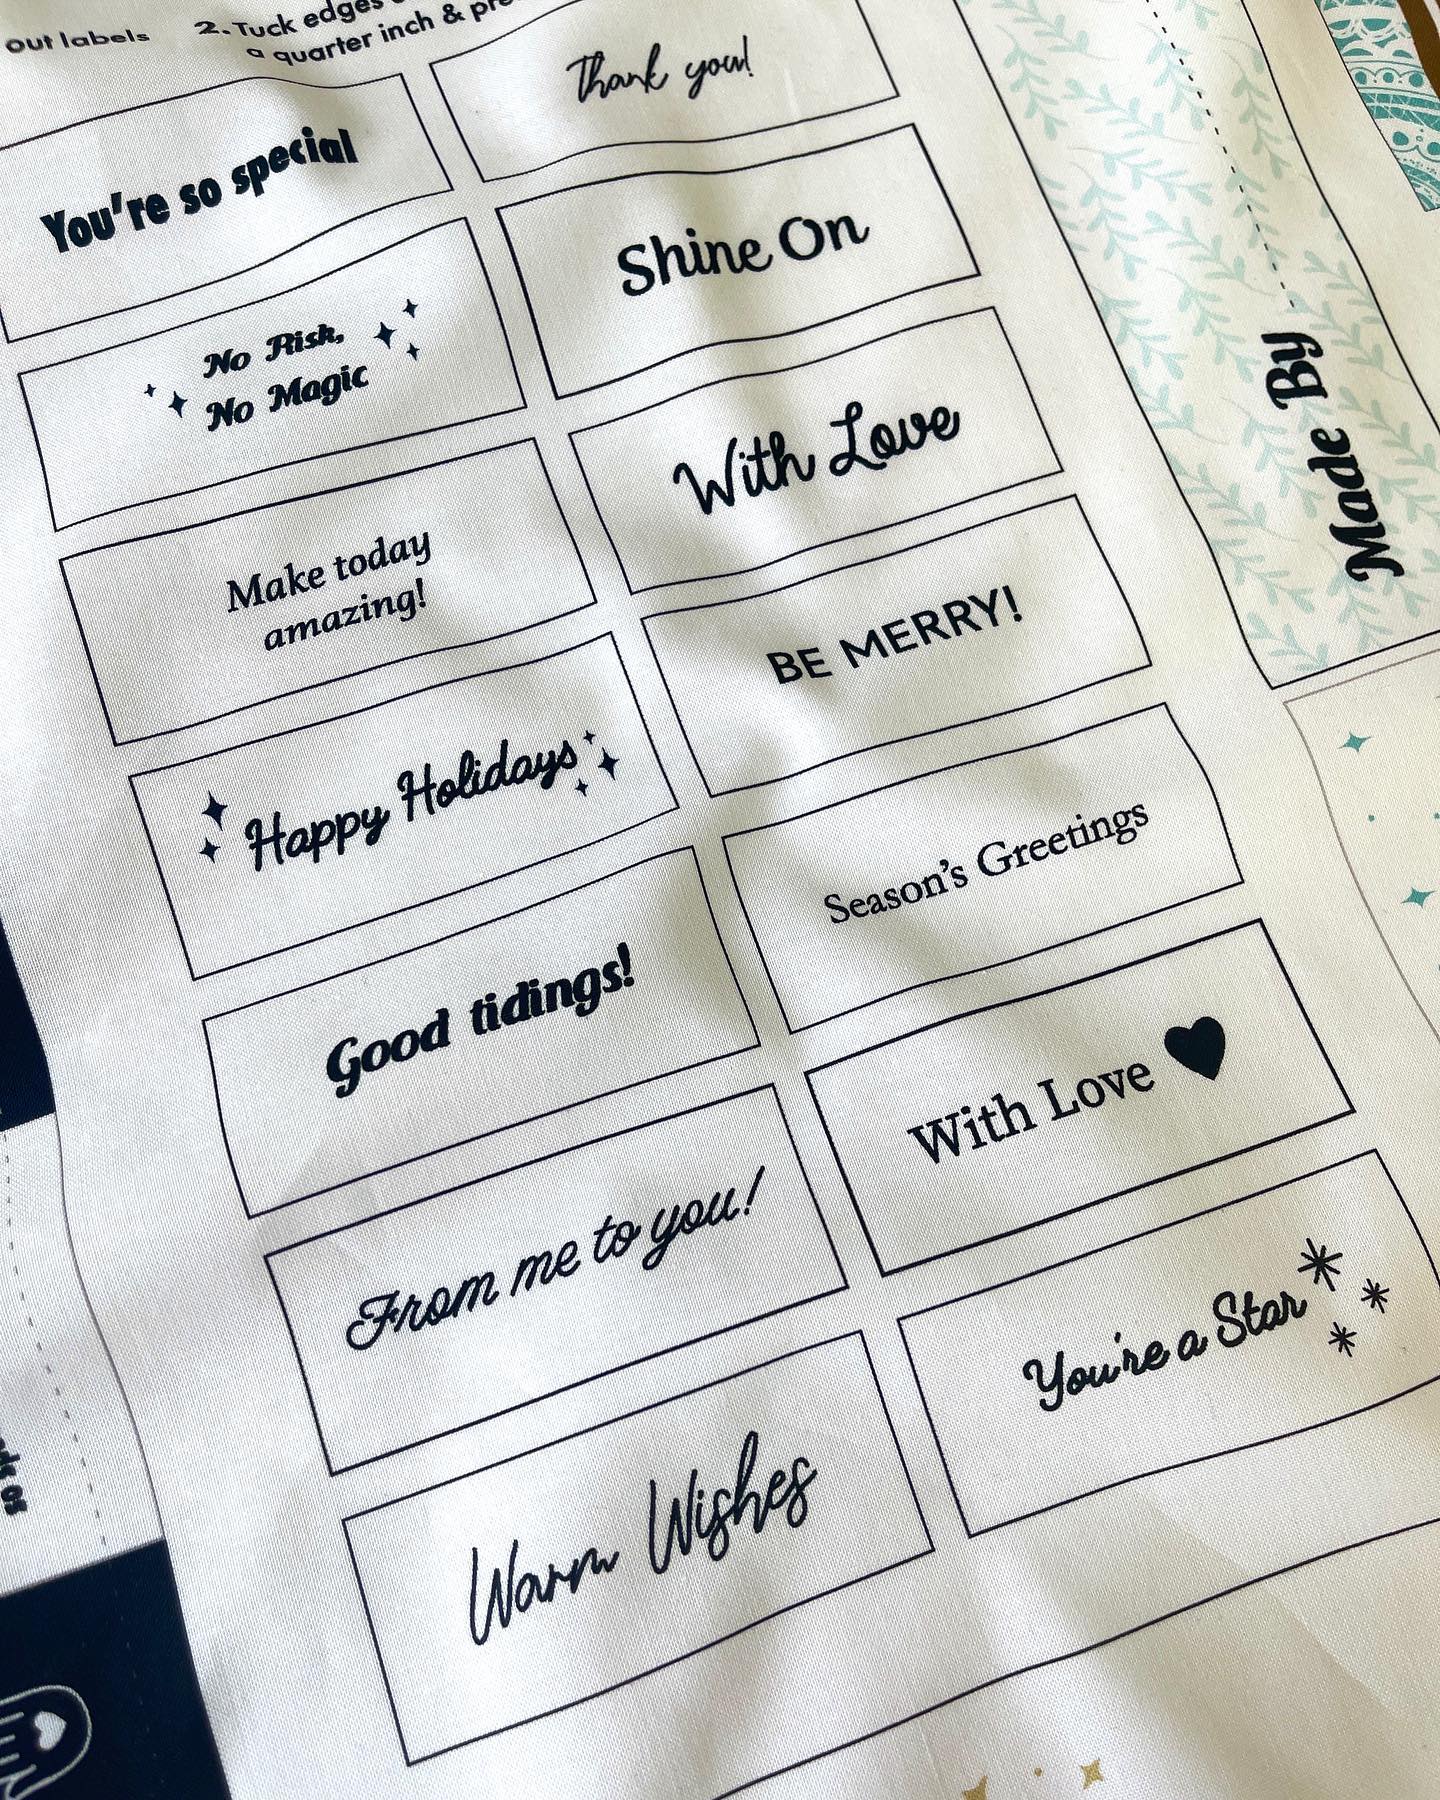 out labels
2. Tuck edges
a quarter inch &
You're so special
Thank you!
No Risk,
No Magic
Shine On
Make today
amazing!
With Love
Happy Holidays
BE MERRY!
Good tidings!
Season's Greetings
From me to you!
With Love
Warm Wishes
You're a Star
Made By